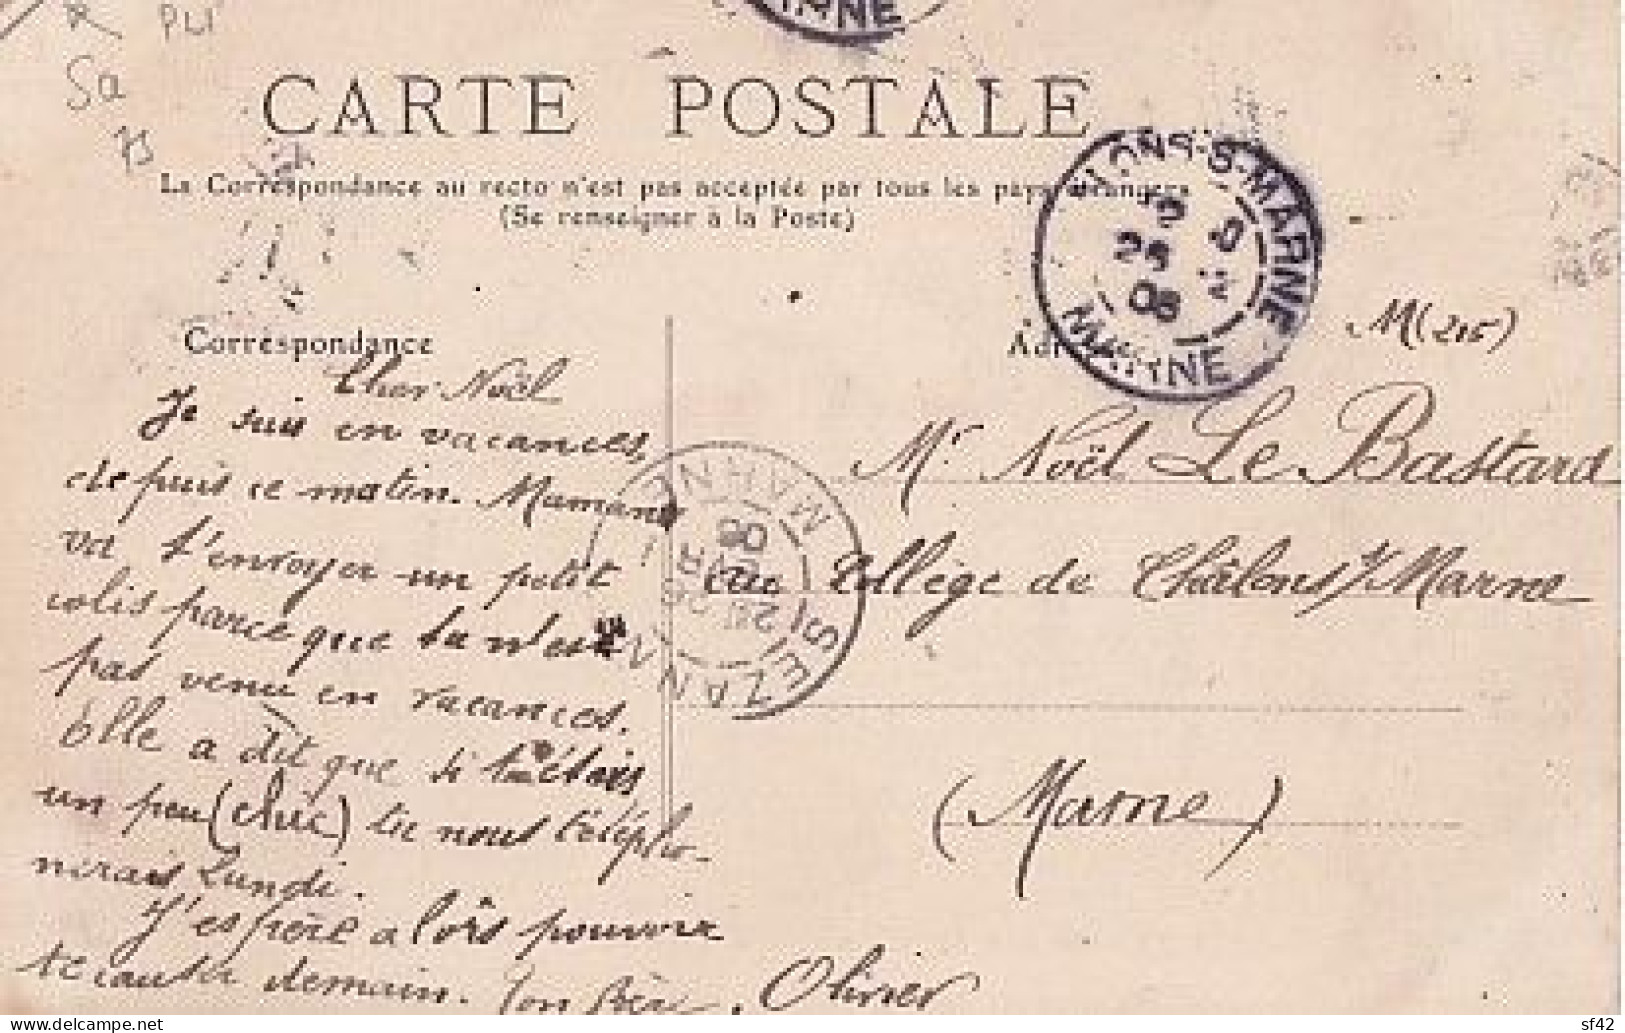 PLI
Sa
CARTE POSTALE
La Correspondance au recto n'est pas acceptée par tous les pays étrangers
(Se renseigner à la Poste)
MARNE
CHALONS-S-MARNE
25
08
MARNE
M (215)
Correspondance
Cher Noël
Je suis en vacances,
depuis ce matin. Maman
va t'envoyer un petit
colis parce que tu n'es
pas venu en vacances.
Elle a dit que si tu étais
un peu (chic) tu nous télépho-
nerais Lundi.
J'espère alors pouvoir
te causer demain. Ton frère, Olivier
Mr Noël Le Bastard
au Collège de Châlons s/ Marne
(Marne)
SEZANNE
MARNE
08
sf42